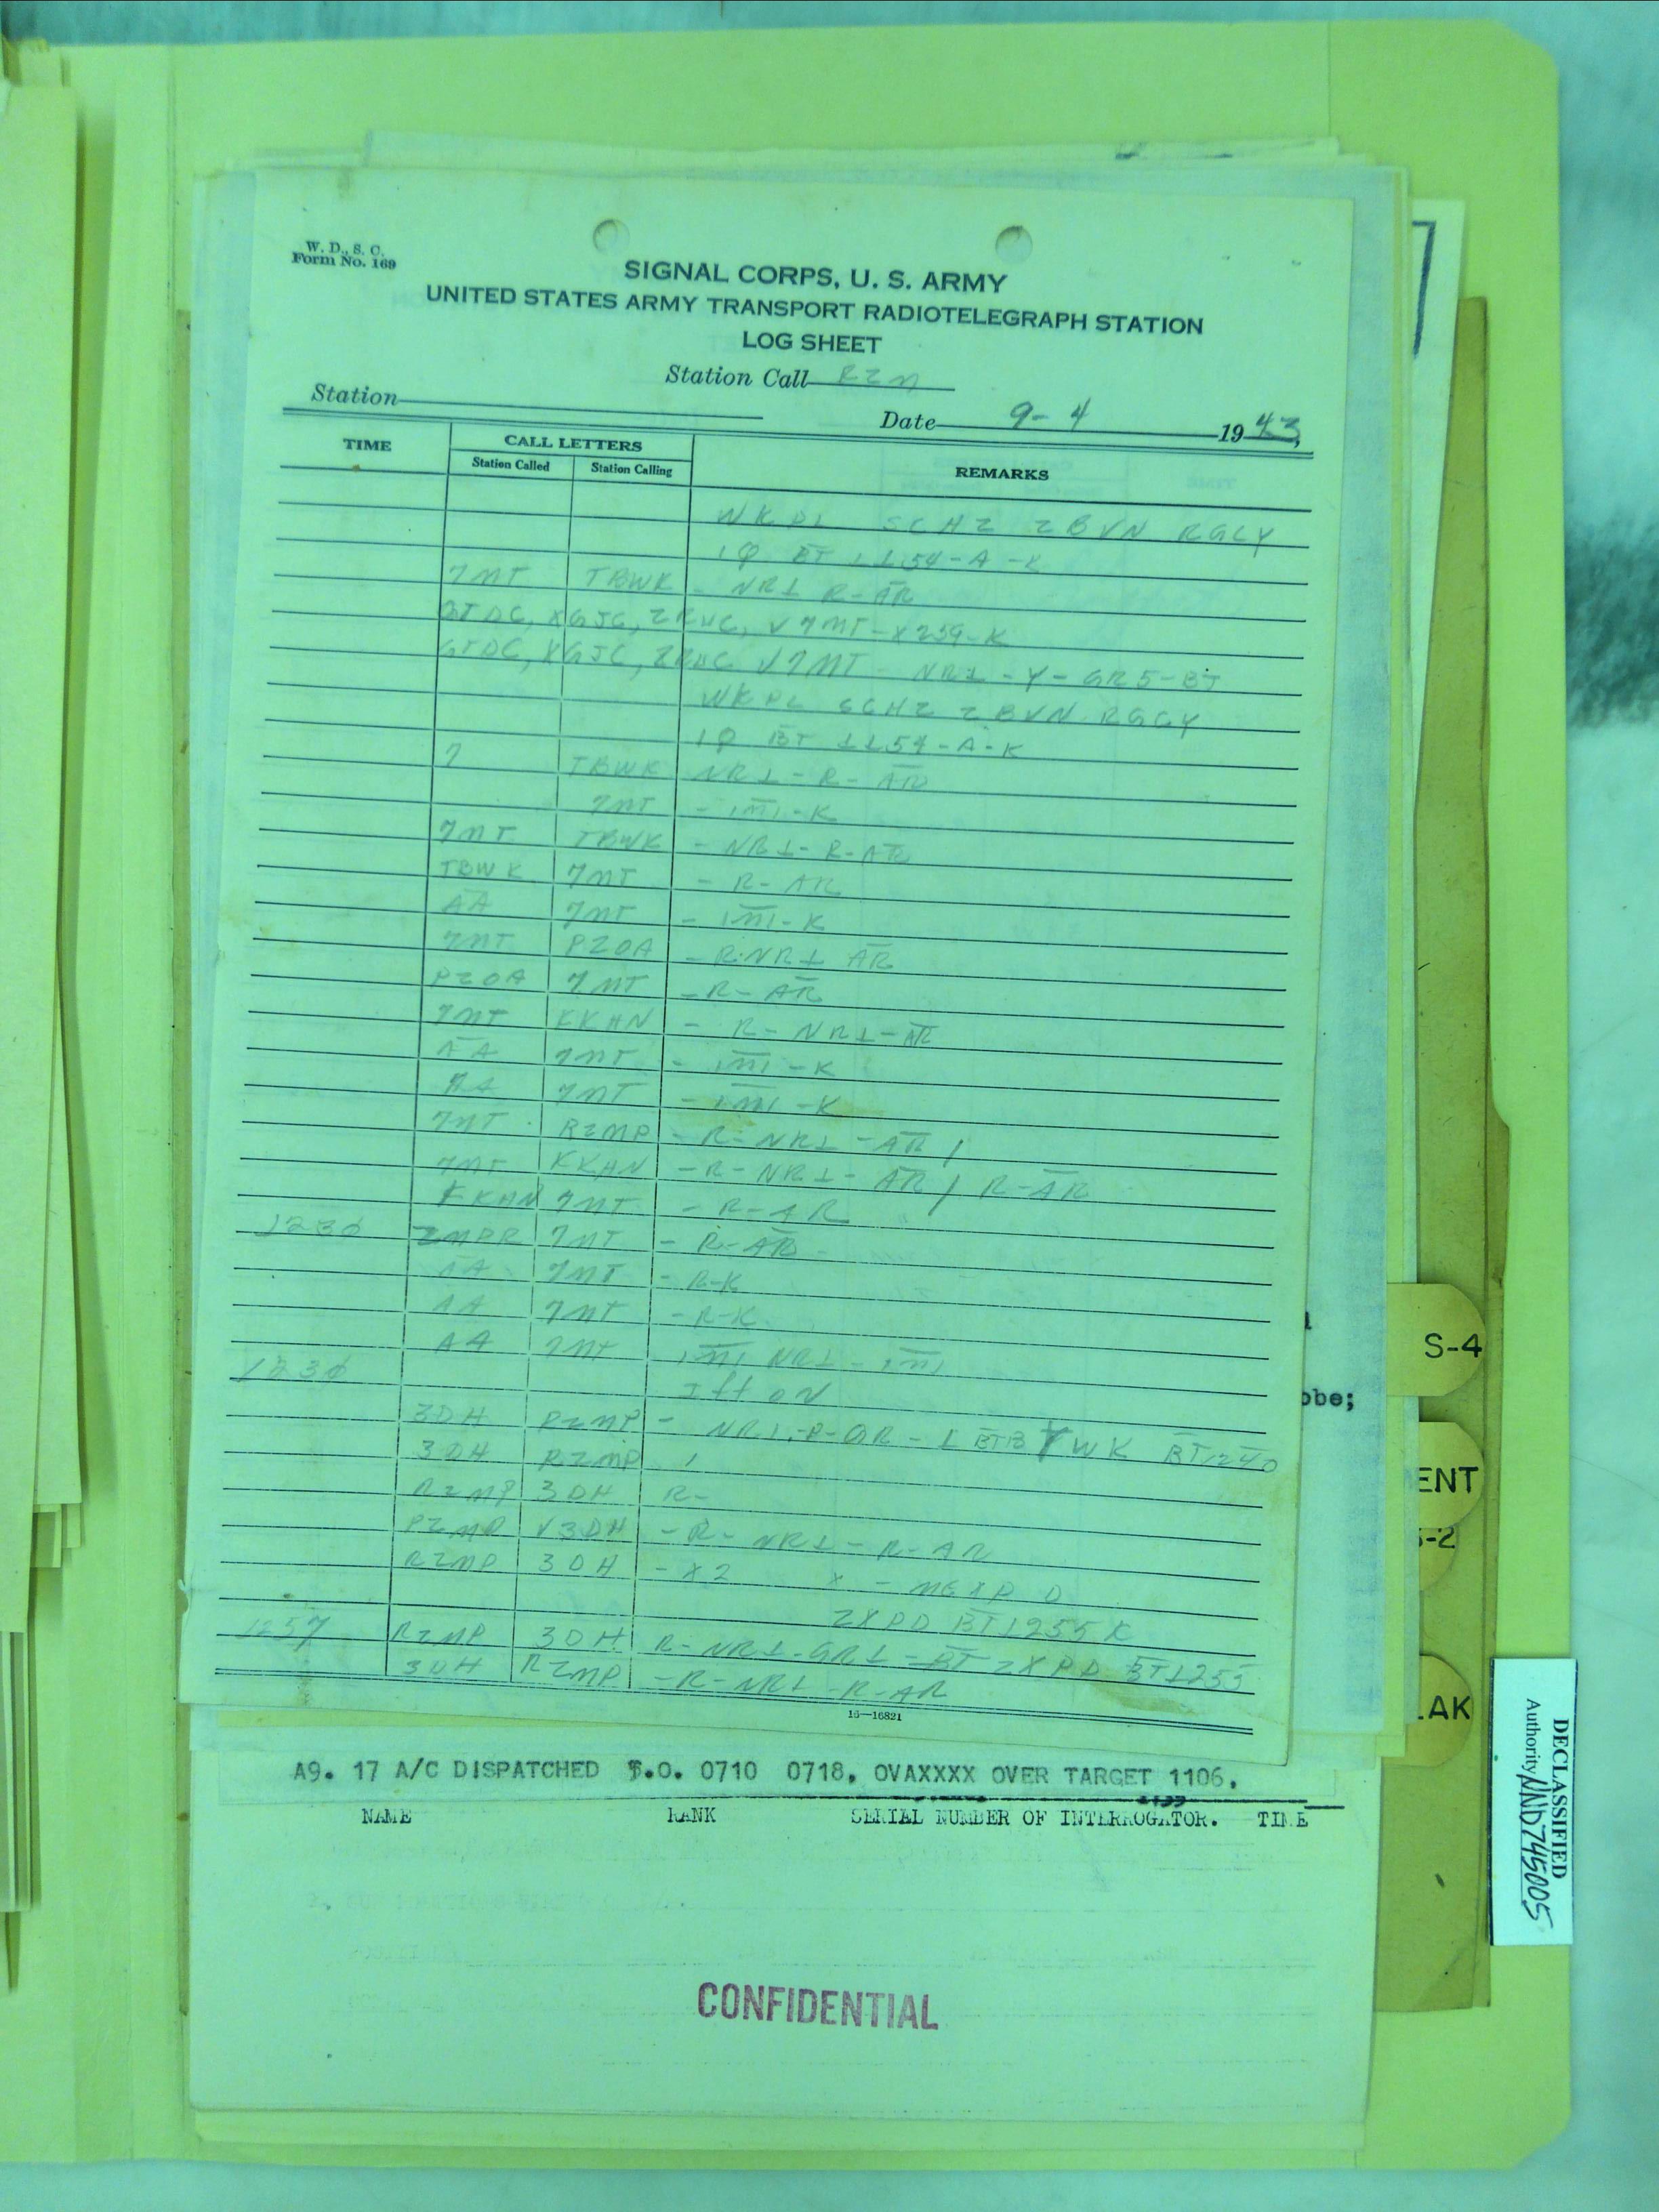 W. D., S. C.
Form No. 169
SIGNAL CORPS, U. S. ARMY
UNITED STATES ARMY TRANSPORT RADIOTELEGRAPH STATION
LOG SHEET
Station Call RZM
Station
Date 9-4 1943,
TIME CALL LETTERS REMARKS
Station Called Station Calling
WKPL SCHZ ZBVN RGCY
1Ø BT 1154-A-K
7MT TBWK - NR1 R-AR
GTDC, XGJC, ZRUC, V7MT-X259-K
GTDC, XGJC, ZRUC V7MT - NR1 - Y - GR5-BT
WKPL SCHZ ZBVN RGCY
1Ø BT 1154-A-K
7 TBWK NR1-R-AR
7MT - IMI-K
7MT TBWK - NR1-R-AR
TBWK 7MT - R-AR
AA 7MT - IMI-K
7MT PZOA - R-NR1 AR
PZOA 7MT - R-AR
7MT KKHN - R-NR1-AR
AA 7MT - IMI-K
AA 7MT - IMI-K
7MT RZMP - R-NR1-AR /
7MT KKHN - R-NR1-AR / R-AR
KKHN 7MT - R-AR
1230 ZMPR 7MT - R-AR
AA 7MT - R-K
AA 7MT - R-K
AA 7MT IMI NR1-IMI
Iff ON
3DH RZMP - NR1-P-GR-1 BT B WK BT1240
3DH RZMP /
RZMP 3DH R-
RZMP V3DH - R- NR1-R-AR
RZMP 3DH - X2 X - D
ZXPD BT1255K
1257 RZMP 3DH R-NR1-GR1-BT ZXPD BT1255
3DH RZMP - R-NR1-R-AR
16—16821
A9. 17 A/C DISPATCHED T.O. 0710 0718. OVAXXXX OVER TARGET 1106.
NAME RANK SERIAL NUMBER OF INTERROGATOR. TIME
CONFIDENTIAL
obe;
S-4
ENT
-2
LAK
DECLASSIFIED
Authority NND745005